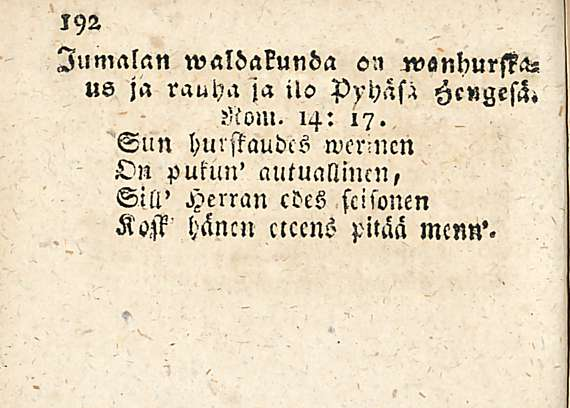 192
Jumalan waldakunda on wanhurska=
us ja rauha ja ilo Pyhäsä Hengesä.
Rom. 14: 17.
Sun hurskaudes wermen
On pukun' autuallinen,
Sill' Herran edes seisonen
Kosk' hänen eteens pitää menn'.